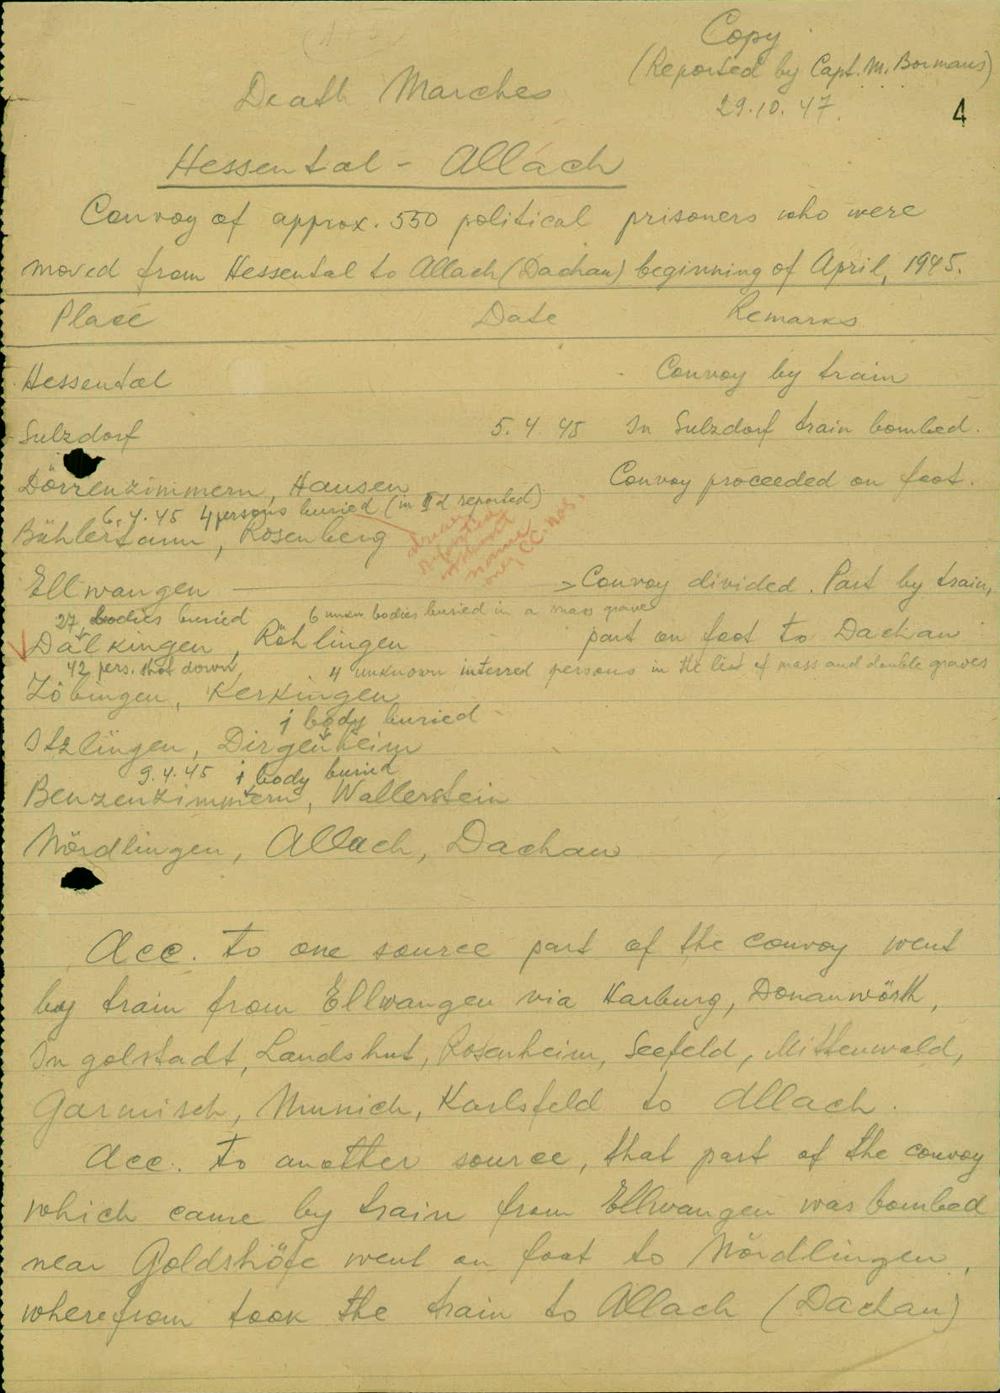 Copy
(Reported by Capt. M. Bormans)
29.10.47.
4
Death Marches
Hessental - Allach
Convoy of approx. 550 political prisoners who were
moved from Hessental to Allach (Dachau) beginning of April, 1945.
Place Date Remarks
Hessental - Convoy by train
Sulzdorf 5.4.45 In Sulzdorf train bombed.
Dörrenzimmern, Hausen Convoy proceeded on foot.
6.4.45 4 persons buried (in reported)
Bühlertann, Rosenberg
Ellwangen > Convoy divided. Part by train,
27 bodies buried 6 unkn bodies buried in a mass grave
Dalkingen, Röhlingen part on foot to Dachau
42 pers. shot down 4 unknown interred persons in the list of mass and double graves
Zöbingen, Kerkingen
1 body buried
Itzlingen, Dirgenheim
9.4.45 1 body buried
Benzenzimmern, Wallerstein
Nördlingen, Allach, Dachau
Acc. to one source part of the convoy went
by train from Ellwangen via Harburg, Donauwörth,
Ingolstadt, Landshut, Rosenheim, Seefeld, Mittenwald,
Garmisch, Munich, Karlsfeld to Allach.
Acc. to another source, that part of the convoy
which came by train from Ellwangen was bombed
near Goldshöfe went on foot to Nördlingen,
wherefrom took the train to Allach (Dachau)